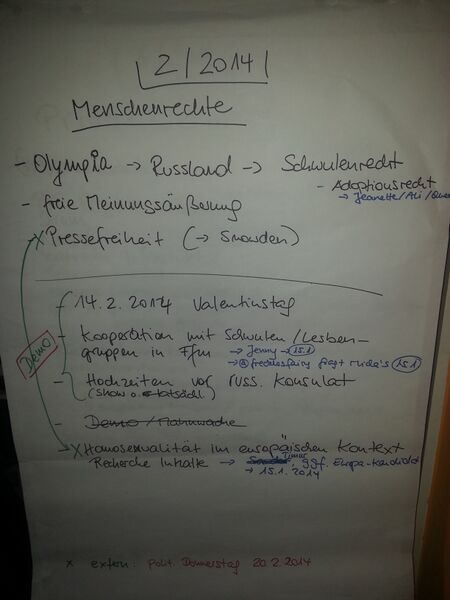 2/2014
Menschenrechte
- Olympia → Russland → Schwulenrecht
- Adoptionsrecht
→ Jeanette/Ali/
- freie Meinungsäußerung
- x Pressefreiheit (→ Snowden)
- 14.2.2014 Valentinstag
- Kooperation mit Schwulen/Lesben-
gruppen in Ffm → Jenny → 15.1
→ fragt 15.1
- Hochzeiten vor russ. Konsulat
(show o. tatsächl.)
Demo
- Demo / Mahnwache
- x Homosexualität im europäischen Kontext
Recherche Inhalte → Timur, ggf. Europa-Kandidat
→ 15.1.2014
x extern: Polit. Donnerstag 20.2.2014